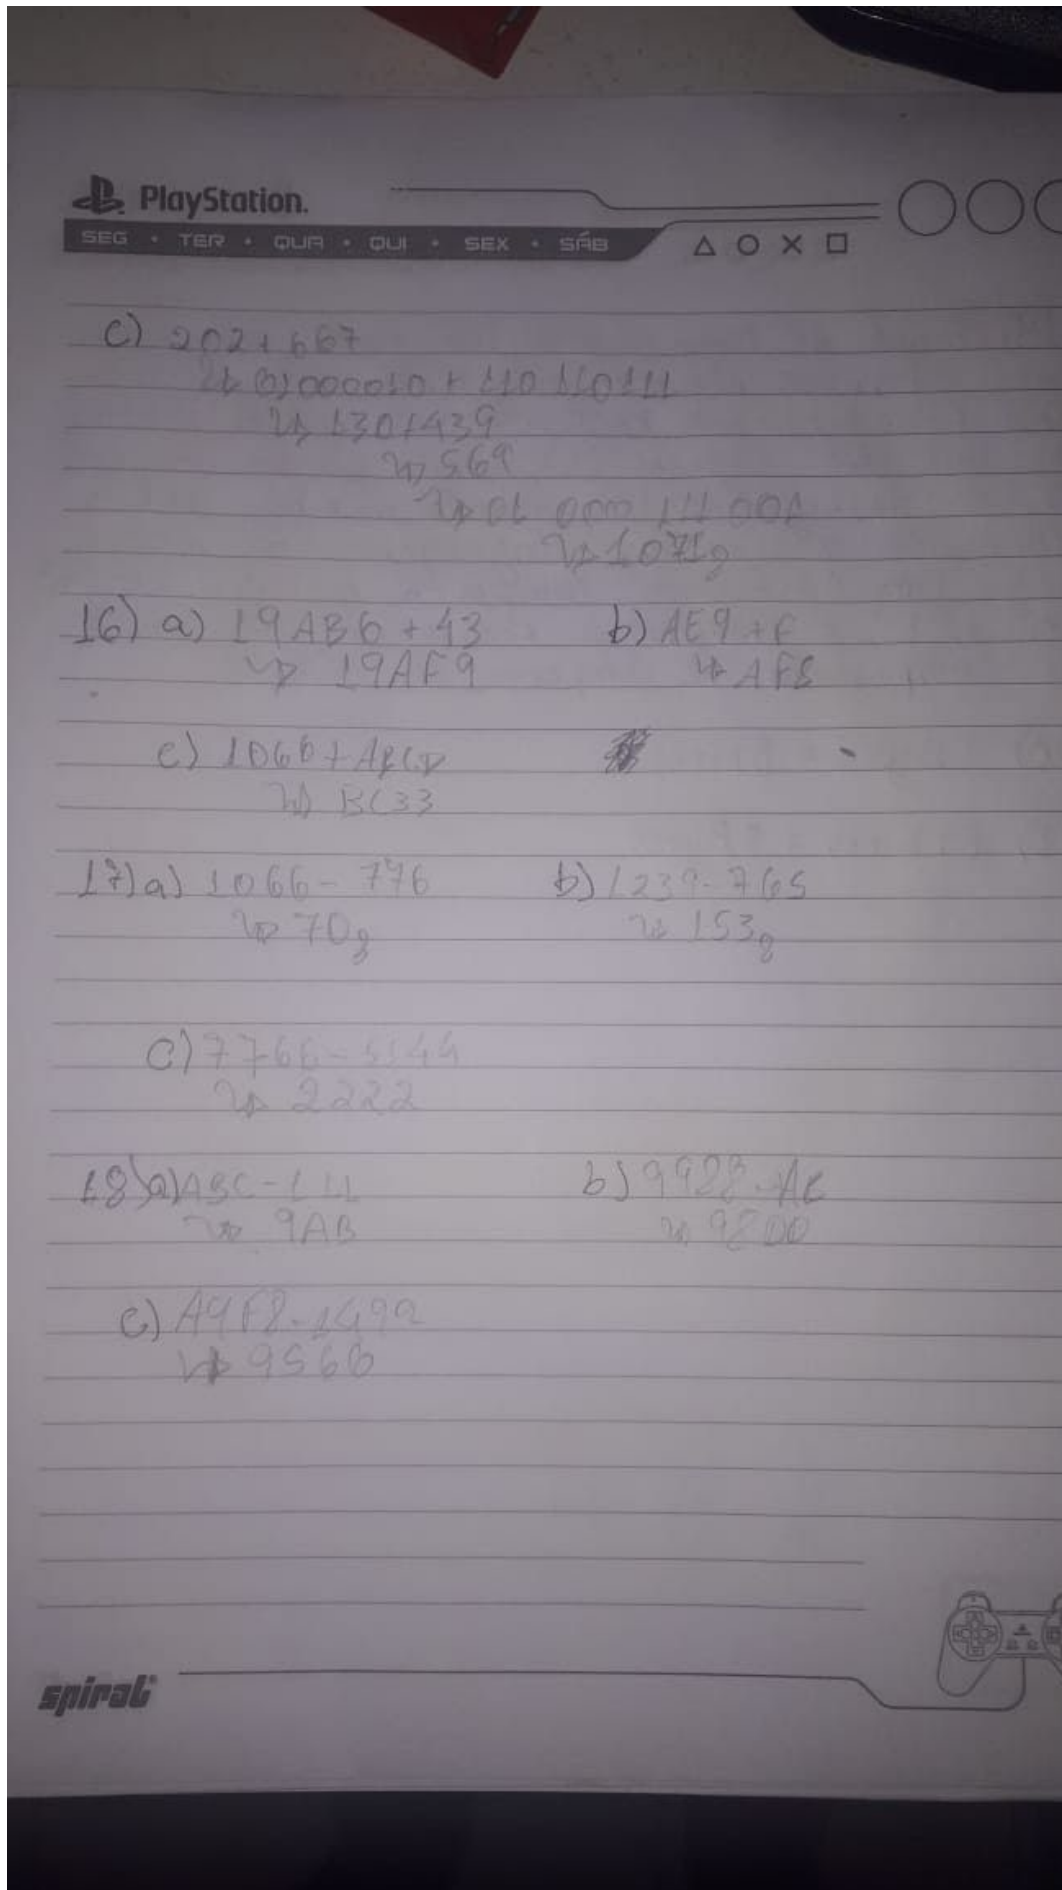 PlayStation.
SEG • TER • QUA • QUI • SEX • SÁB
c) 202 + 667
↳ 010000010 + 110 110111
↳ 130 + 439
↳ 569
↳ 01 000 111 001
↳ 1071₈
16) a) 19AB6 + 43 b) AE9 + F
↳ 19AF9 ↳ AF8
c) 1066 + ABCD
↳ BC33
17) a) 1066 - 776 b) 1239 - 765
↳ 70₈ ↳ 153₈
c) 7766 - 5544
↳ 2222
18) a) ABC - 111 b) 9928 - AB
↳ 9AB
c) A9F8 - 1492
↳ 9566
spiral